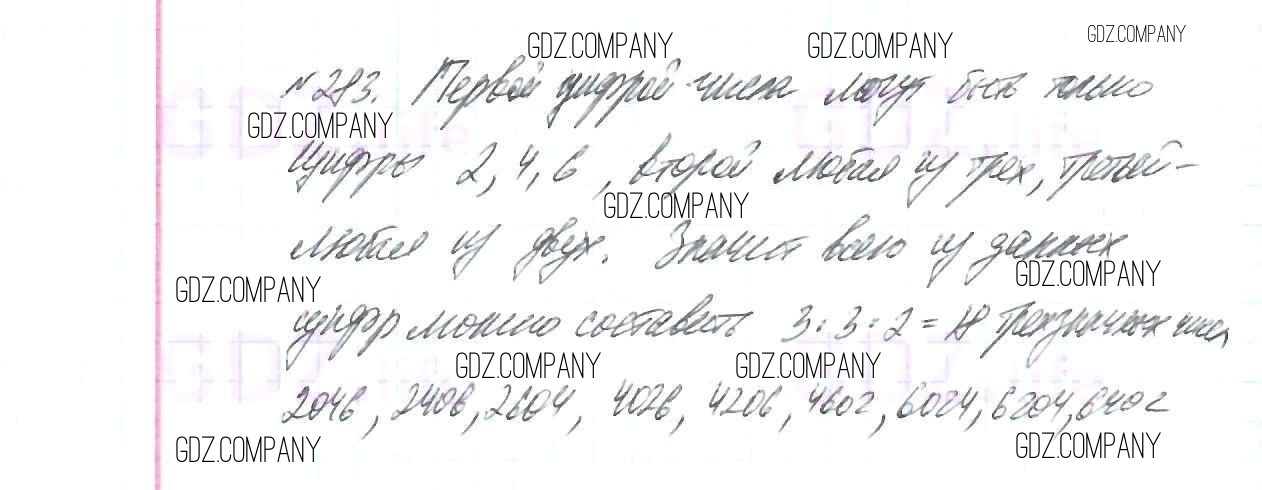 GDZ.COMPANY GDZ.COMPANY GDZ.COMPANY
№ 283. Первой цифрой числа могут быть только
GDZ.COMPANY
Цифры 2, 4, 6, второй любая из трех, третьей -
GDZ.COMPANY
любая из двух. Значит всего из данных
GDZ.COMPANY GDZ.COMPANY
цифр можно составить 3 : 3 : 2 = 18 трехзначных чисел
GDZ.COMPANY GDZ.COMPANY
2046, 2406, 2604, 4026, 4206, 4602, 6024, 6204, 6402
GDZ.COMPANY GDZ.COMPANY